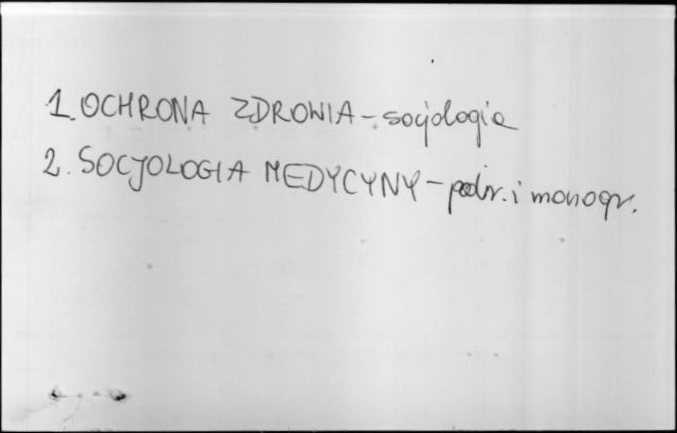 1. OCHRONA ZDROWIA - socjologia
2. SOCJOLOGIA MEDYCYNY - podr. i monogr.